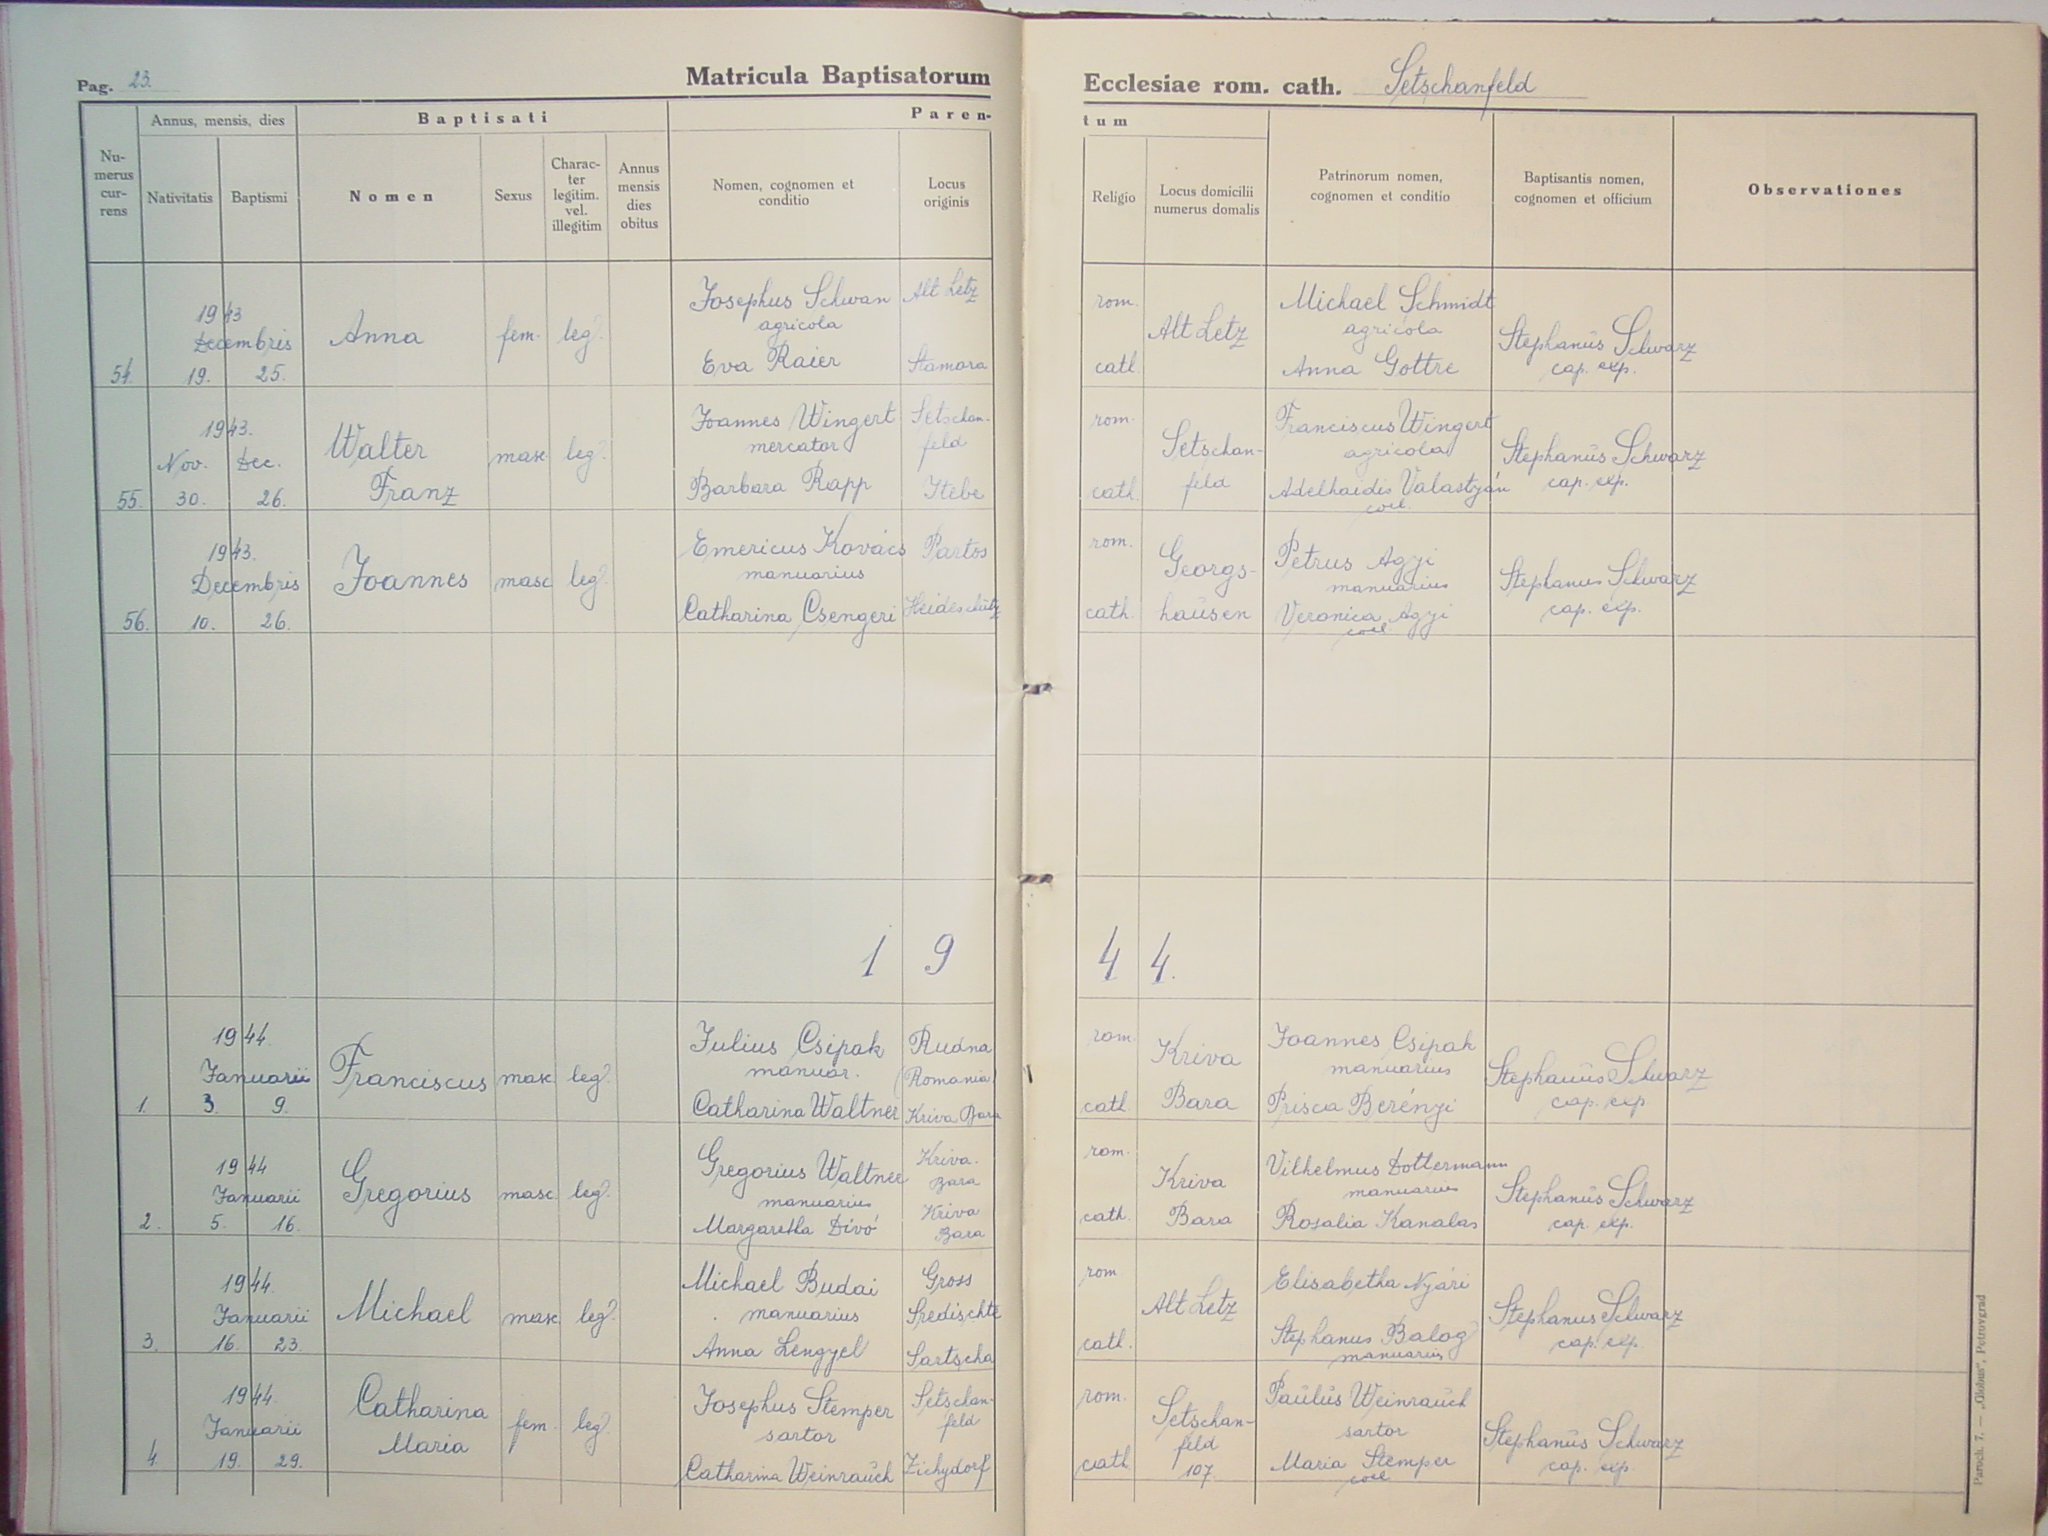 Pag. 23.
Matricula Baptisatorum
Ecclesiae rom. cath. Setschanfeld
Nu-
merus
cur-
rens
Annus, mensis, dies
Nativitatis
Baptismi
Baptisati
Nomen
Sexus
Charac-
ter
legitim.
vel.
illegitim
Annus
mensis
dies
obitus
Paren-
Nomen, cognomen et
conditio
Locus
originis
tum
Religio
Locus domicilii
numerus domalis
Patrinorum nomen,
cognomen et conditio
Baptisantis nomen,
cognomen et officium
Observationes
54.
1943
Decembris
19. 25.
Anna
fem.
leg.
Josephus Schwan
agricola
Eva Raier
Alt Letz
Stamora
rom.
cath.
Alt Letz
Michael Schmidt
agricola
Anna Gottre
Stephanus Schwarz
cap. exp.
55.
1943.
Nov. Dec.
30. 26.
Walter
Franz
masc.
leg.
Joannes Wingert
mercator
Barbara Rapp
Setschan-
feld
Itebe
rom.
cath.
Setschan-
feld
Franciscus Wingert
agricola
Adelhaidis Valastyán
coel.
Stephanus Schwarz
cap. exp.
56.
1943.
Decembris
10. 26.
Joannes
masc
leg.
Emericus Kovács
manuarius
Catharina Csengeri
Partos
Heideschütz
rom.
cath.
Georgs-
hausen
Petrus Agyi
manuarius
Veronica Agyi
coel.
Stephanus Schwarz
cap. exp.
1 9 4 4.
1.
1944.
Januarii
3. 9.
Franciscus
masc.
leg.
Julius Csipak
manuar.
Catharina Waltner
Rudna
(Romania)
Kriva Bara
rom.
cath.
Kriva
Bara
Joannes Csipak
manuarius
Prisca Berényi
Stephanus Schwarz
cap. exp
2.
1944
Januarii
5. 16.
Gregorius
masc.
leg.
Gregorius Waltner
manuarius
Margaretha Dívó
Kriva.
Bara
Kriva
Bara
rom.
cath.
Kriva
Bara
Vilhelmus Dottermann
manuarius
Rosalia Kanalas
Stephanus Schwarz
cap. exp.
3.
1944.
Januarii
16. 23.
Michael
masc.
leg.
Michael Budai
manuarius
Anna Lengyel
Gross
Sredischte
Sartscha
rom
cath.
Alt Letz
Elisabetha Nyári
Stephanus Balog
manuarius
Stephanus Schwarz
cap. exp.
4
1944.
Januarii
19. 29.
Catharina
Maria
fem.
leg.
Josephus Stemper
sartor
Catharina Weinrauch
Setschan-
feld
Zichydorf
rom.
cath
Setschan-
feld
107
Paulus Weinrauch
sartor
Maria Stemper
coel
Stephanus Schwarz
cap. exp
Paroch. 7. — „Globus“, Petrovgrad